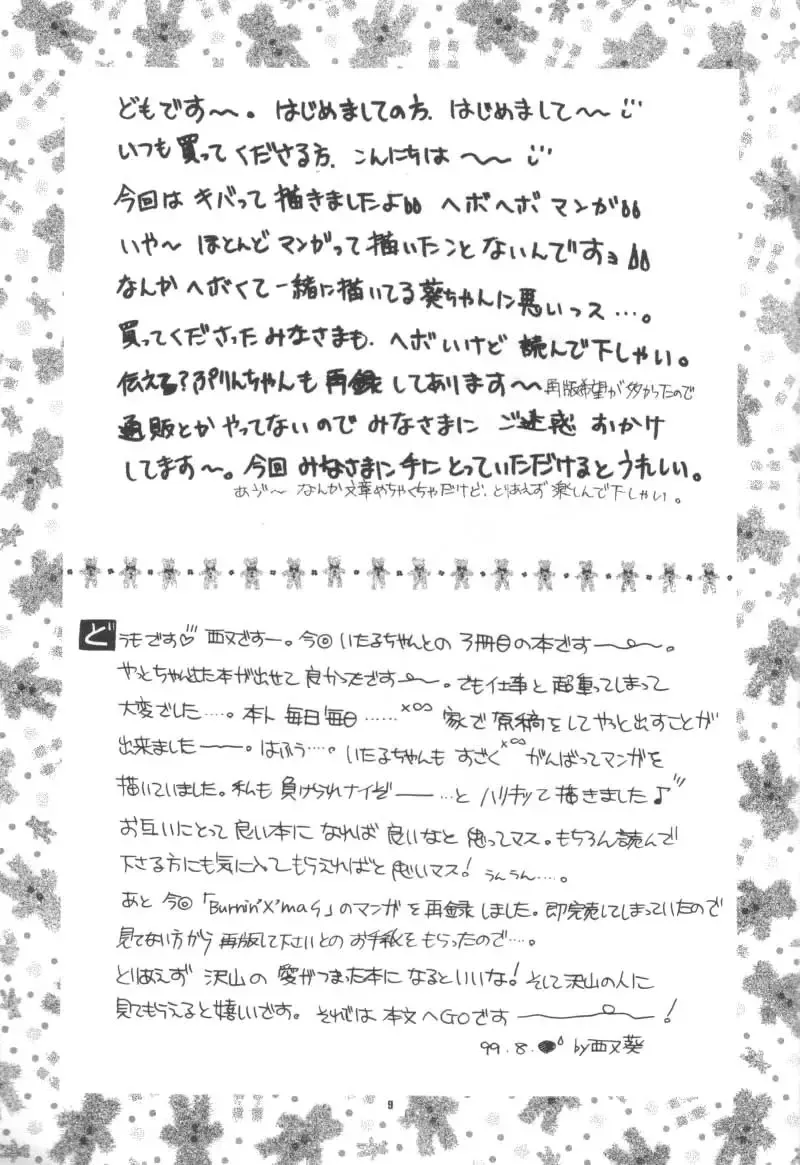 どもです〜。はじめましての方、はじめまして〜
いつも買ってくださる方、こんにちは〜
今回は キバって 描きましたよ ヘボヘボ マンガ
いや〜 ほとんど マンガって 描いたこと ないんですョ
なんか ヘボくて 一緒に描いてる葵ちゃんに悪いっス…。
買ってくださった みなさまも、ヘボいけど 読んで下しゃい。
伝える?ぷりんちゃんも 再録 してあります〜 再版希望が多かったので
通販とか やってないので みなさまに ご迷惑 おかけ
してます〜。今回 みなさまに手にとっていただけるとうれしい。
あぅ〜 なんか文章めちゃくちゃだけど、とりあえず 楽しんで下しゃい。
どうもです♡ 西又ですー。今回 いたるちゃんとの 3冊目の本です――。
やっとちゃんと 本が出せて 良かったです――。でも仕事と 超重ってしまって
大変でした…。本人 毎日毎日…… 家で 原稿をしてやっと出すことが
出来ました――。はふぅ…。いたるちゃんも すごく がんばってマンガを
描いていました。私も 負けられナイぞ――…と ハリキッて 描きました♪
お互いにとって 良い本に なれば 良いなと 思ってマス。もちろん読んで
下さる方にも気に入ってもらえればと思いマス! うんうん…。
あと 今回「Burnin'X'mas」のマンガ を再録しました。即完売してしまっていたので
見てない方から 再版して下さいとの お手紙を もらったので…。
とりあえず 沢山の 愛がつまった本に なるといいな! そして沢山の人に
見てもらえると嬉しいです。それでは 本文へGOです――!
99.8. by西又葵
9